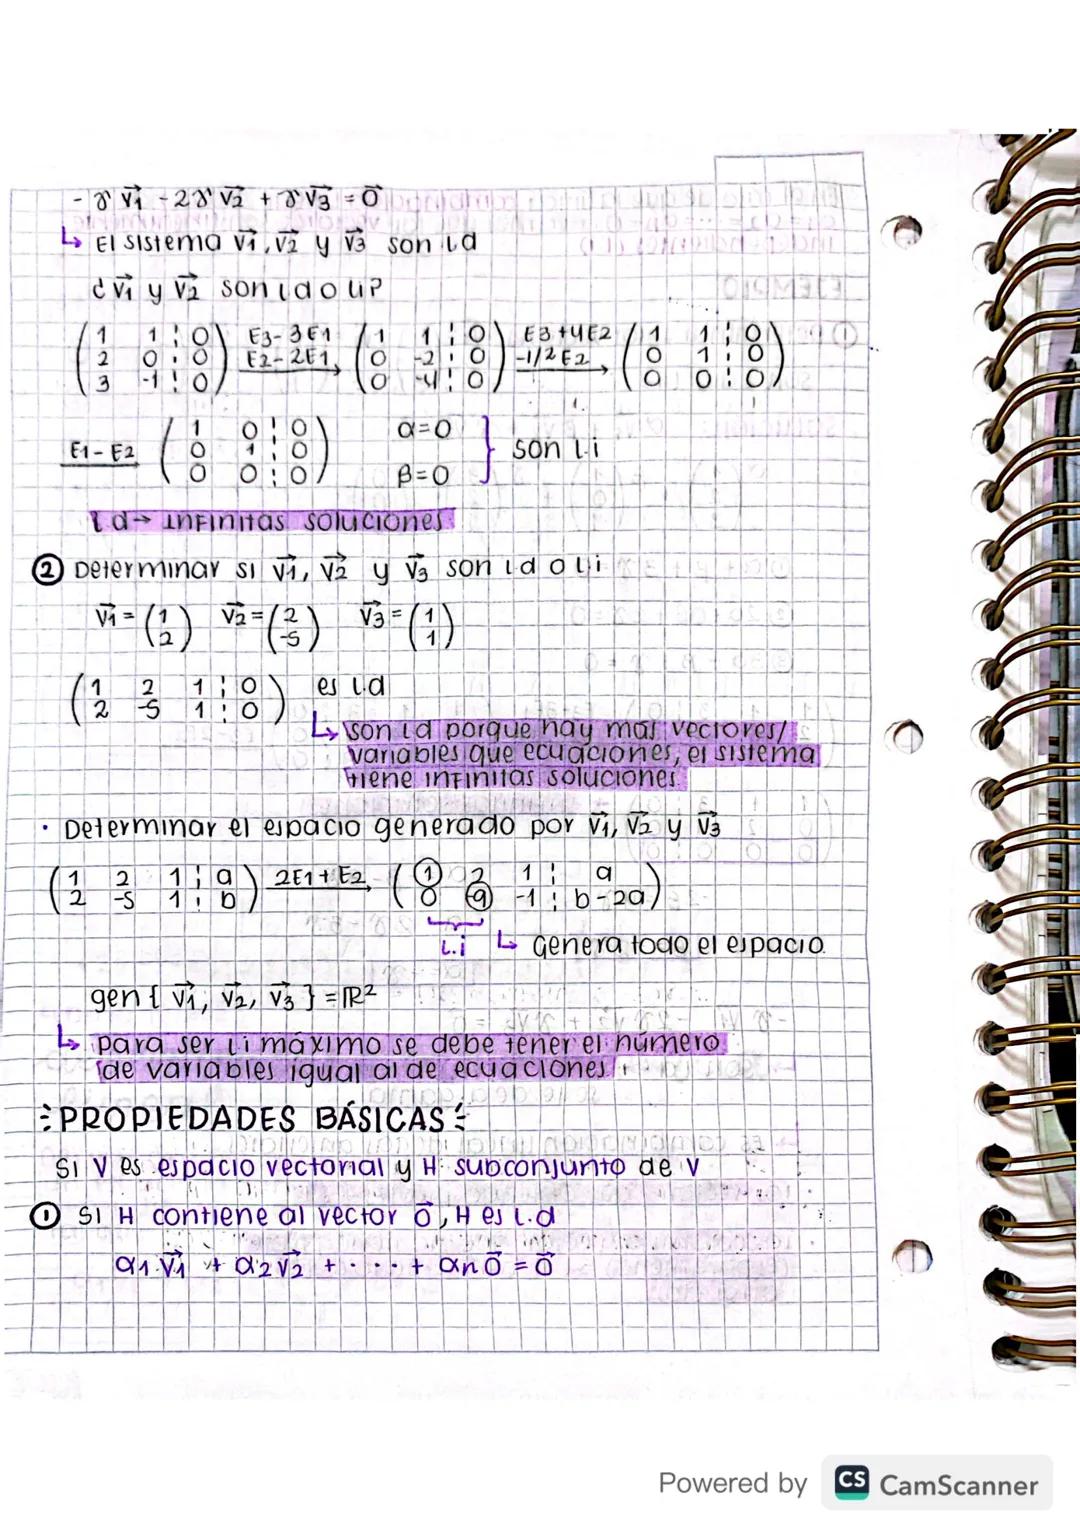 - γ v1 - 2γ v2 + γ v3 = 0
↳ El sistema v1, v2 y v3 son l.d
¿v1 y v2 son l.d o l.i?
( 1 1 ¦ 0 ) E3-3E1 ( 1 1 ¦ 0 ) E3+4E2 ( 1 1 ¦ 0 )
( 2 0 ¦ 0 ) E2-2E1 ( 0 -2 ¦ 0 ) -1/2 E2 ( 0 1 ¦ 0 )
( 3 -1 ¦ 0 ) ( 0 -4 ¦ 0 ) ( 0 0 ¦ 0 )
( 1 0 ¦ 0 ) α=0
E1-E2 ( 0 1 ¦ 0 ) } son l.i
( 0 0 ¦ 0 ) β=0
l.d → infinitas soluciones
② Determinar si v1, v2 y v3 son l.d o l.i
v1 = (1 2) v2 = (2 -5) v3 = (1 1)
( 1 2 1 ¦ 0 ) es l.d
( 2 -5 1 ¦ 0 )
↳ son l.d porque hay más vectores/
variables que ecuaciones, el sistema
tiene infinitas soluciones.
• Determinar el espacio generado por v1, v2 y v3
( 1 2 1 ¦ a ) 2E1 + E2 ( 1 2 1 ¦ a )
( 2 -5 1 ¦ b ) ( 0 -9 -1 ¦ b-2a )
l.i ↳ Genera todo el espacio.
gen { v1, v2, v3 } = ℝ²
↳ para ser l.i máximo se debe tener el número
de variables igual al de ecuaciones.
PROPIEDADES BÁSICAS
Si V es espacio vectorial y H subconjunto de V
① Si H contiene al vector 0, H es l.d
α1·v1 + α2 v2 + ··· + αn 0 = 0
Powered by CS CamScanner